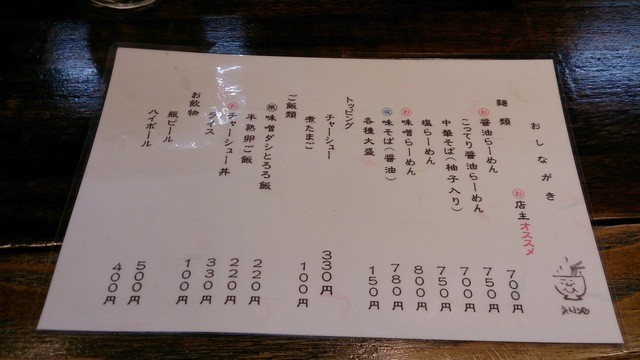 おしながき
㋔店主オススメ
麺類
醤油らーめん 700円
こってり醤油らーめん 750円
中華そば(柚子入り) 700円
塩らーめん 750円
味噌らーめん 800円
味そば(醤油) 780円
各種大盛 150円
トッピング
チャーシュー 330円
煮たまご 100円
ご飯類
味噌ダシとろろ飯 220円
半熟卵ご飯 220円
チャーシュー丼 330円
ライス 100円
お飲物
瓶ビール 500円
ハイボール 400円